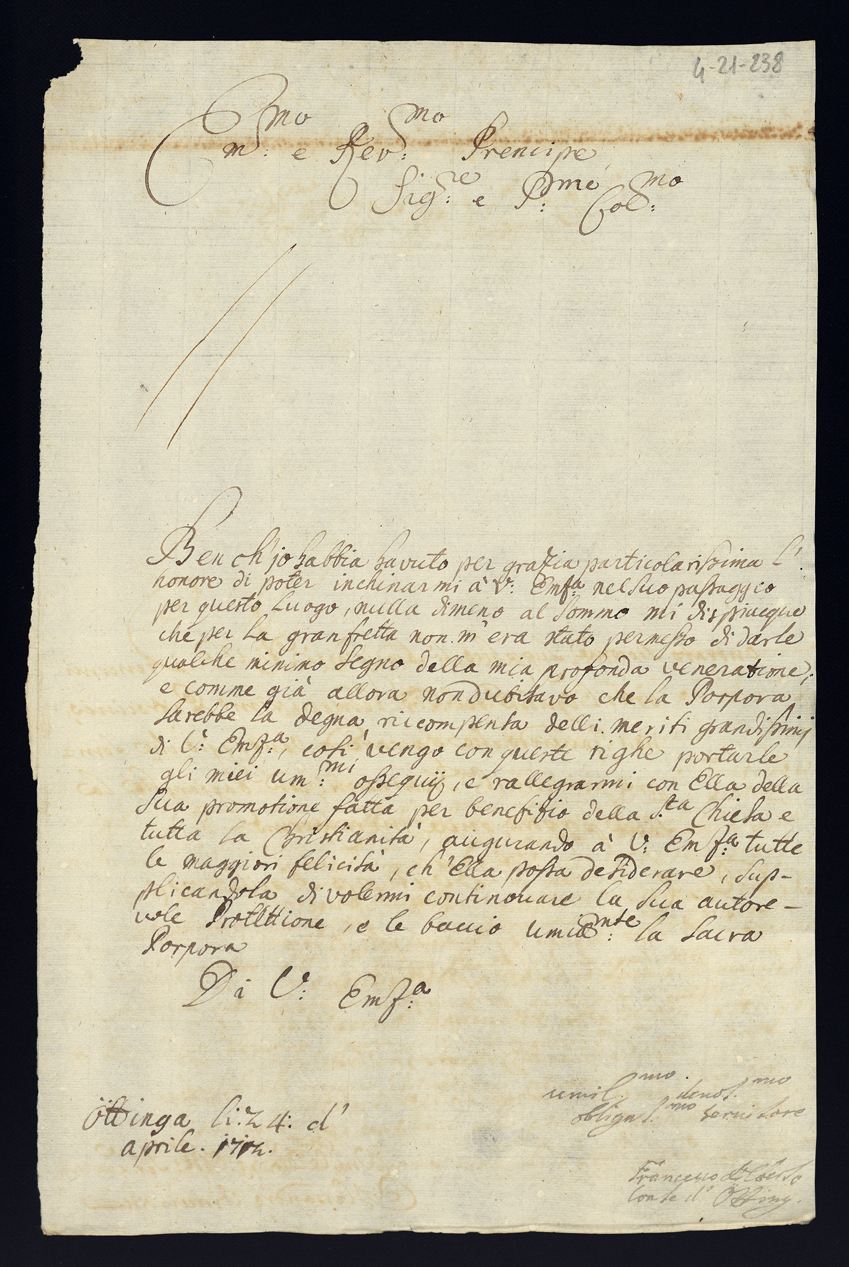 4-21-238
Em:mo e Rev:mo Prencipe
Sig:re e P:rne Col:mo
Ben ch'jo habbia havuto per grazia particolarissima l'
honore di poter inchinarmi à V: Emza nel suo passaggeo
per questo Luogo, nulla dimeno al sommo mi dispiacque
che per la gran fretta non m'era stato permesso di darle
qualche minimo segno della mia profonda veneratione;
e comme già allora non dubitavo che la Porpora
sarebbe la degna riccompensa delli meriti grandissimj
di V: Emz:a, cosi vengo con queste righe portarle
gli miei um:mi ossequij, e rallegrarmi con Ella della
sua promotione fatta per benefizio della S:ta Chiesa e
tutta la Christianità, augurando à V: Emz:a tutte
le maggiori felicità, ch'Ella possa desiderare, sup-
plicandola di volermi continovare la sua autore-
vole Protettione, e le baccio umilmnte: la sacra
Porpora
Di V: Emz:a
umil.mo devot.mo
obligat.mo servitore
Öttinga li: 24: d'
aprile. 1712.
Francesco
Conte d' Otting.